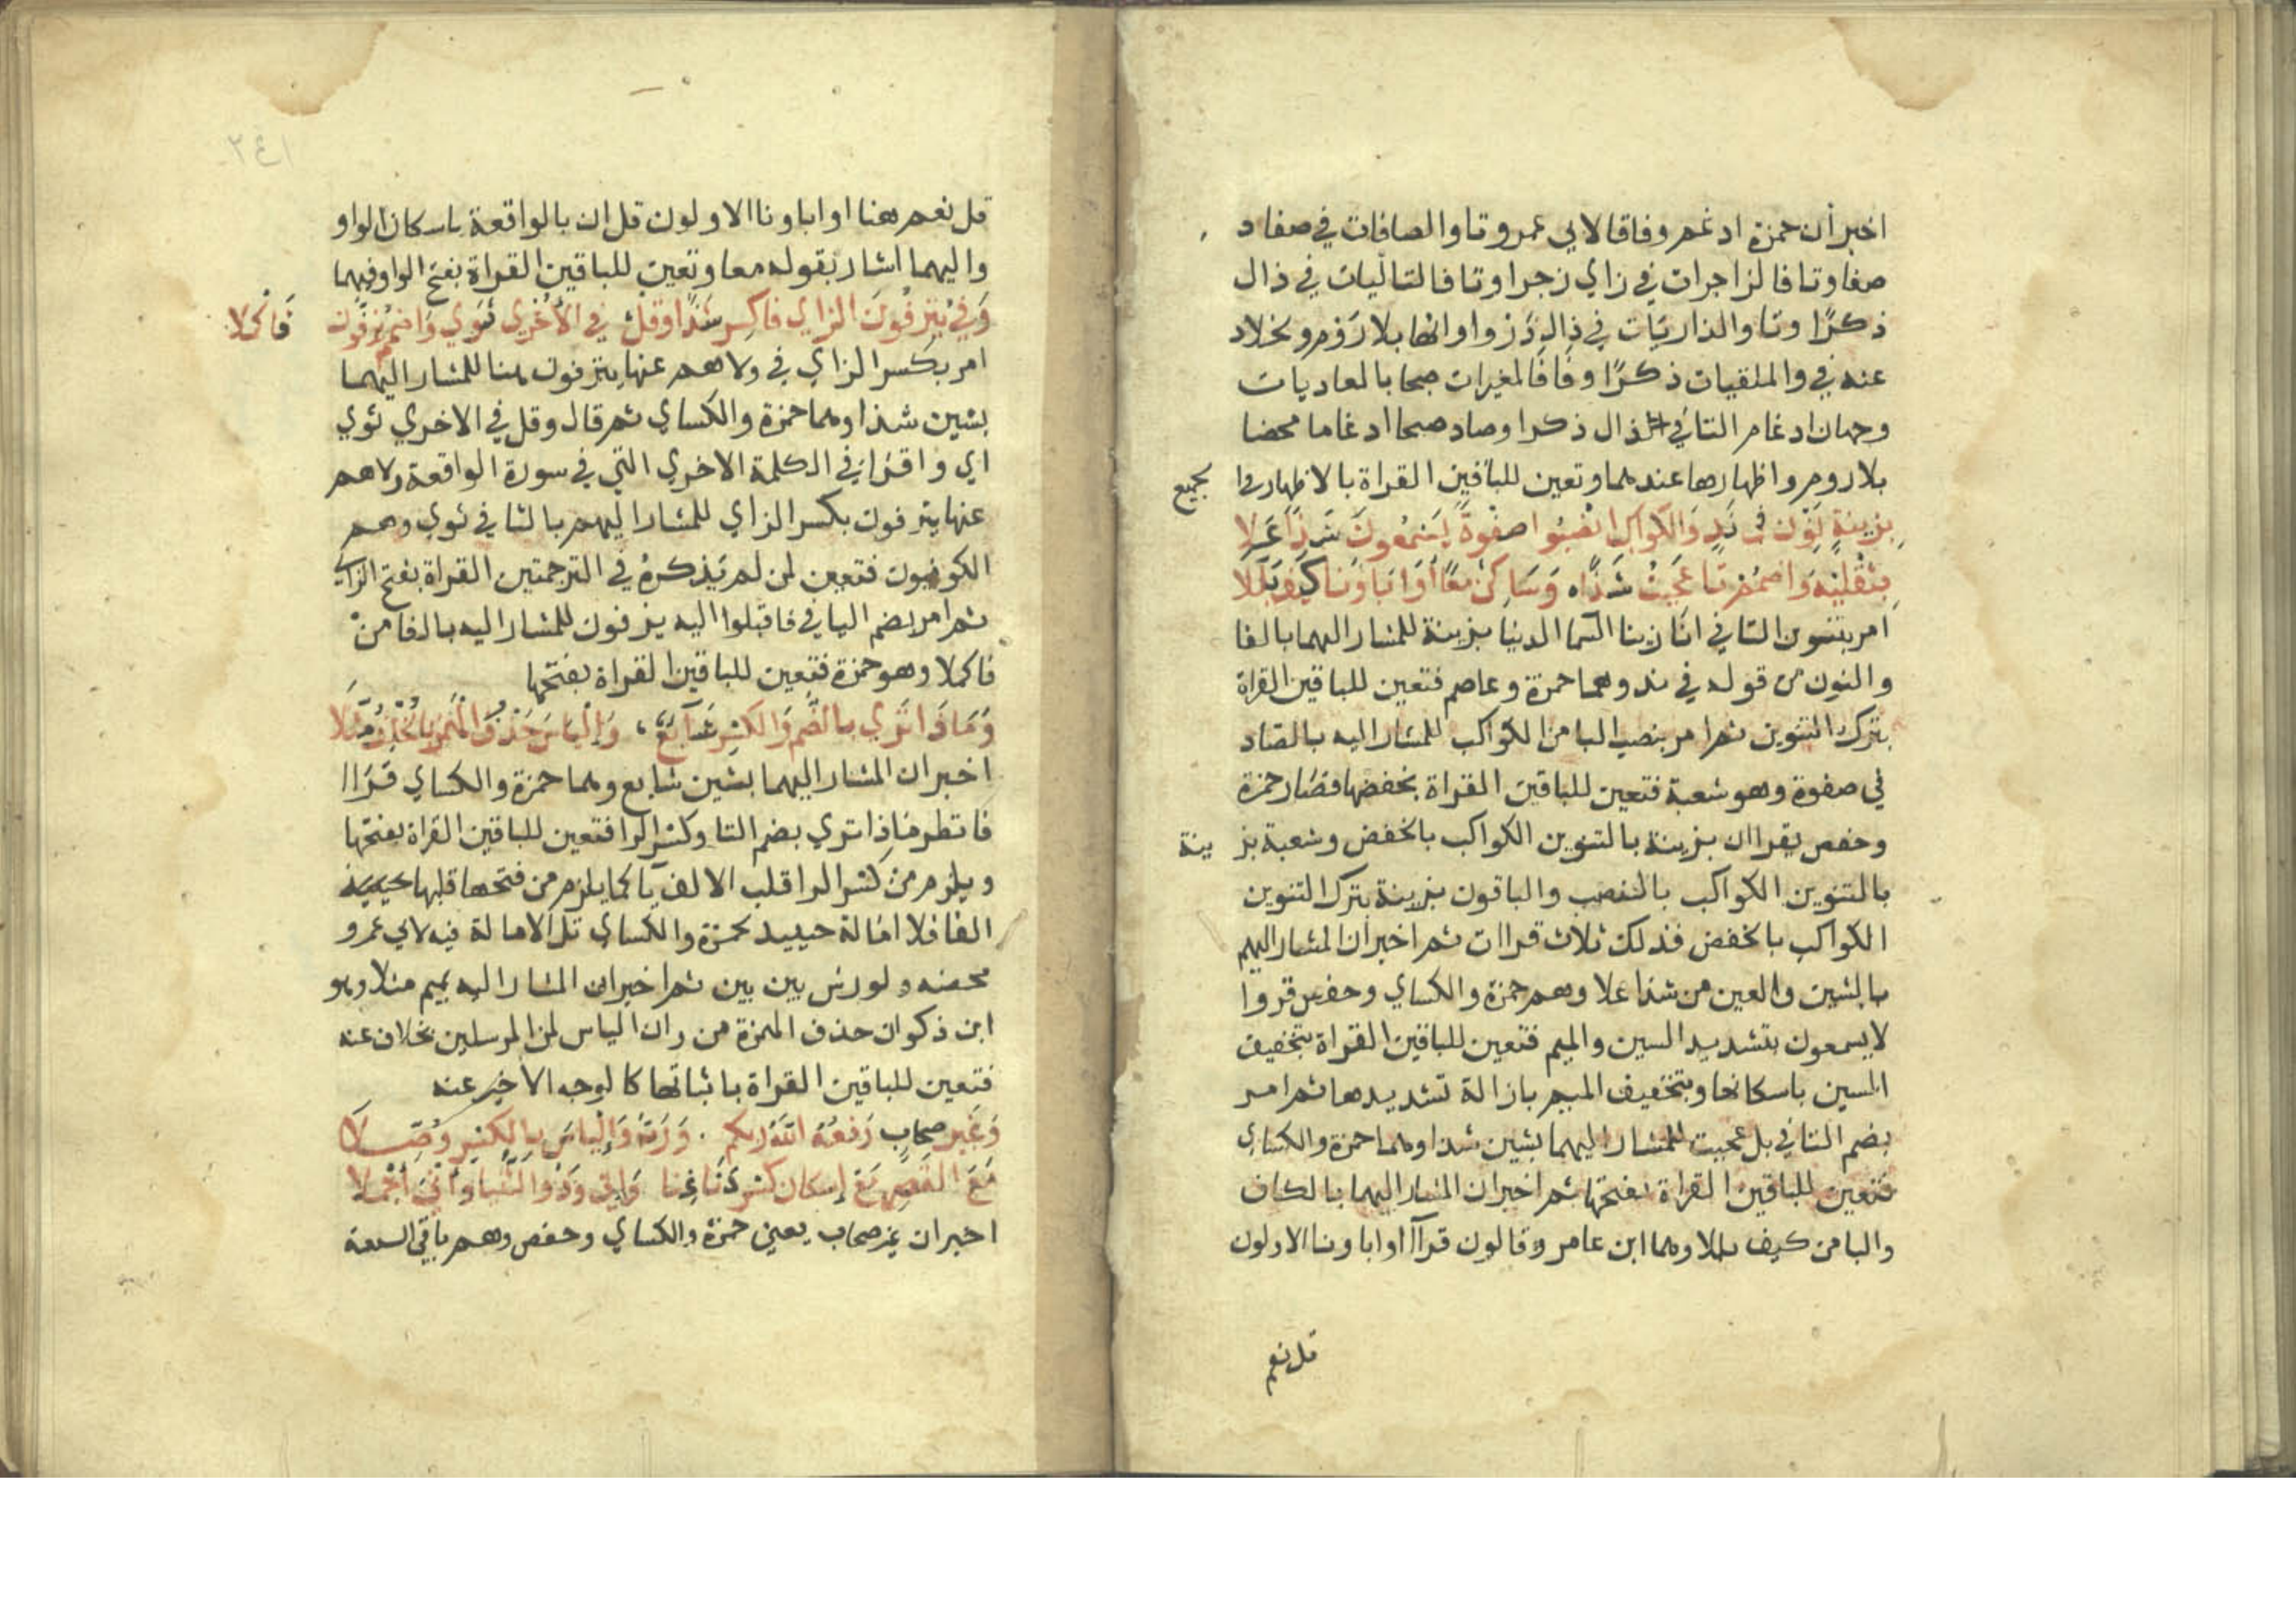 اخبر أن حمزة ادغم وفاقا لابي عمرو تا والصافات في صفا د
صفا وتا فالزاجرات في زاي زجرا وتا فالتاليات في ذال
ذكرًا وتا والذاريات في ذال ذروا واتها بلا رَوْم وخلاد
عنه في والملقيات ذكرًا وفَافَالمغيرات صبحا بالعاديات
وجهان ادغام التا في ذال ذكرا وصاد صبحا ادغاما محضا
بلا روم واظهارها عندهما وتعين للباقين القراة بالاظهار في الجميع
بِزينةٍ نَوّن في نَدٍ وَالكواكب انصبوا صفوةً يَسّمعون شَذًا عَلا
بِثقليْهِ وَاضمُمْ تَا عَجبتُ شَذًاه وَسَاكنٌ معًا أوَ آبَاؤنا كَيفَ بَلّلا
امر بتنوين التا في انا زينا السما الدنيا بزينة للمشار اليهما بالفا
والنون من قوله في ند وهما حمزة وعاصم فتعين للباقين القراة
بترك التنوين ثم امر بنصب البا من الكواكب للمشار اليه بالصاد
في صفوة وهو شعبة فتعين للباقين القراة بخفضها فصَار حمزة
وحفص يقران بزينة بالتنوين الكواكب بالخفض وشعبة بز ينة
بالتنوين الكواكب بالنصب والباقون بزينة بترك التنوين
الكواكب بالخفض فذلك ثلاث قراات ثم اخبر ان المشار اليهم
بالشين والعين من شذا علا وهم حمزة والكساي وحفص قروا
لا يسمعون بتشديد السين والميم فتعين للباقين القراة بتخفيف
السين باسكانها وبتخفيف الميم بازالة تشديدها ثم امر
بضم التا في بل عجبت للمشار اليهما بشين شذا وهما حمزة والكساي
فتعين للباقين القراة بفتحها ثم اخبر ان المشار اليهما بالكاف
والبا من كيف بللا وهما ابن عامر وقالون قرآ او اباونا الاولون
قل نعم
٣٤١
قل نعم هنا او اباونا الاولون قل ان بالواقعة باسكان الواو
واليهما اشار بقوله معا وتعين للباقين القراة بفتح الواو فيهما
وَفي يُنزفُونَ الزاي فاكسِر شَذًا وقلْ في الأُخرى ثوَي وَاضمُمْ يَزفّون فَاكملا
امر بكسر الزاي في ولا هم عنها ينزفون هنا للمشار اليهما
بشين شذا وهما حمزة والكساي ثم قال وقل في الاخري ثوي
اي واقرا في الكلمة الاخري التي في سورة الواقعة ولا هم
عنها ينزفون بكسر الزاي للمشار اليهم بالثا في ثوي وهم
الكوفيون فتعين لمن لم يَذكرهُ في الترجمتين القراة بفتح الزاي
ثم امر بضم اليا في فاقبلوا اليه يزفون للمشار اليه بالفا منْ
فاكملا وهو حمزة فتعين للباقين القراة بفتحها
وَمَاذَا تُري بالضّم وَالكسْر شَآيعٌ، وَإليَاسَ حَذفُ الهمْز بالخُلفِ مُثّلا
اخبر ان المشار اليهما بشين شايع وهما حمزة والكساي قرَاا
فانظر مَاذا تري بضم التا وكسْر الرا فتعين للباقين القراة بفتحها
ويلزم منْ كسْر الرا قلب الالف يآ كما يلزم من فتحها قلبها حينيذ
الفا فلا امَالة حينيذ لحمزة والكساي تل الامالة فيه لابي عمرو
محضه ولورش بين بين ثم اخبر ان المشار اليه بميم مثلا وهو
ابن ذكوان حذف الهمزة من وان الياس لمن المرسلين بخلاف عنه
فتعين للباقين القراة باثباتها كالوجه الاخير عنه
وَغَير صحَابٍ رَفعُهُ اللهُ ربكم . وَرَبّ وَإليَاسَ بالكسْر وُصّلا
مَعَ القَصْرِ مَعْ إسكان كسْر دَنَا غِنا وَإني وَذُو الثُنيا وَأني أجْملا
اخبر ان غير صحاب يعني حمزة والكساي وحفص وهم باقي السبعة